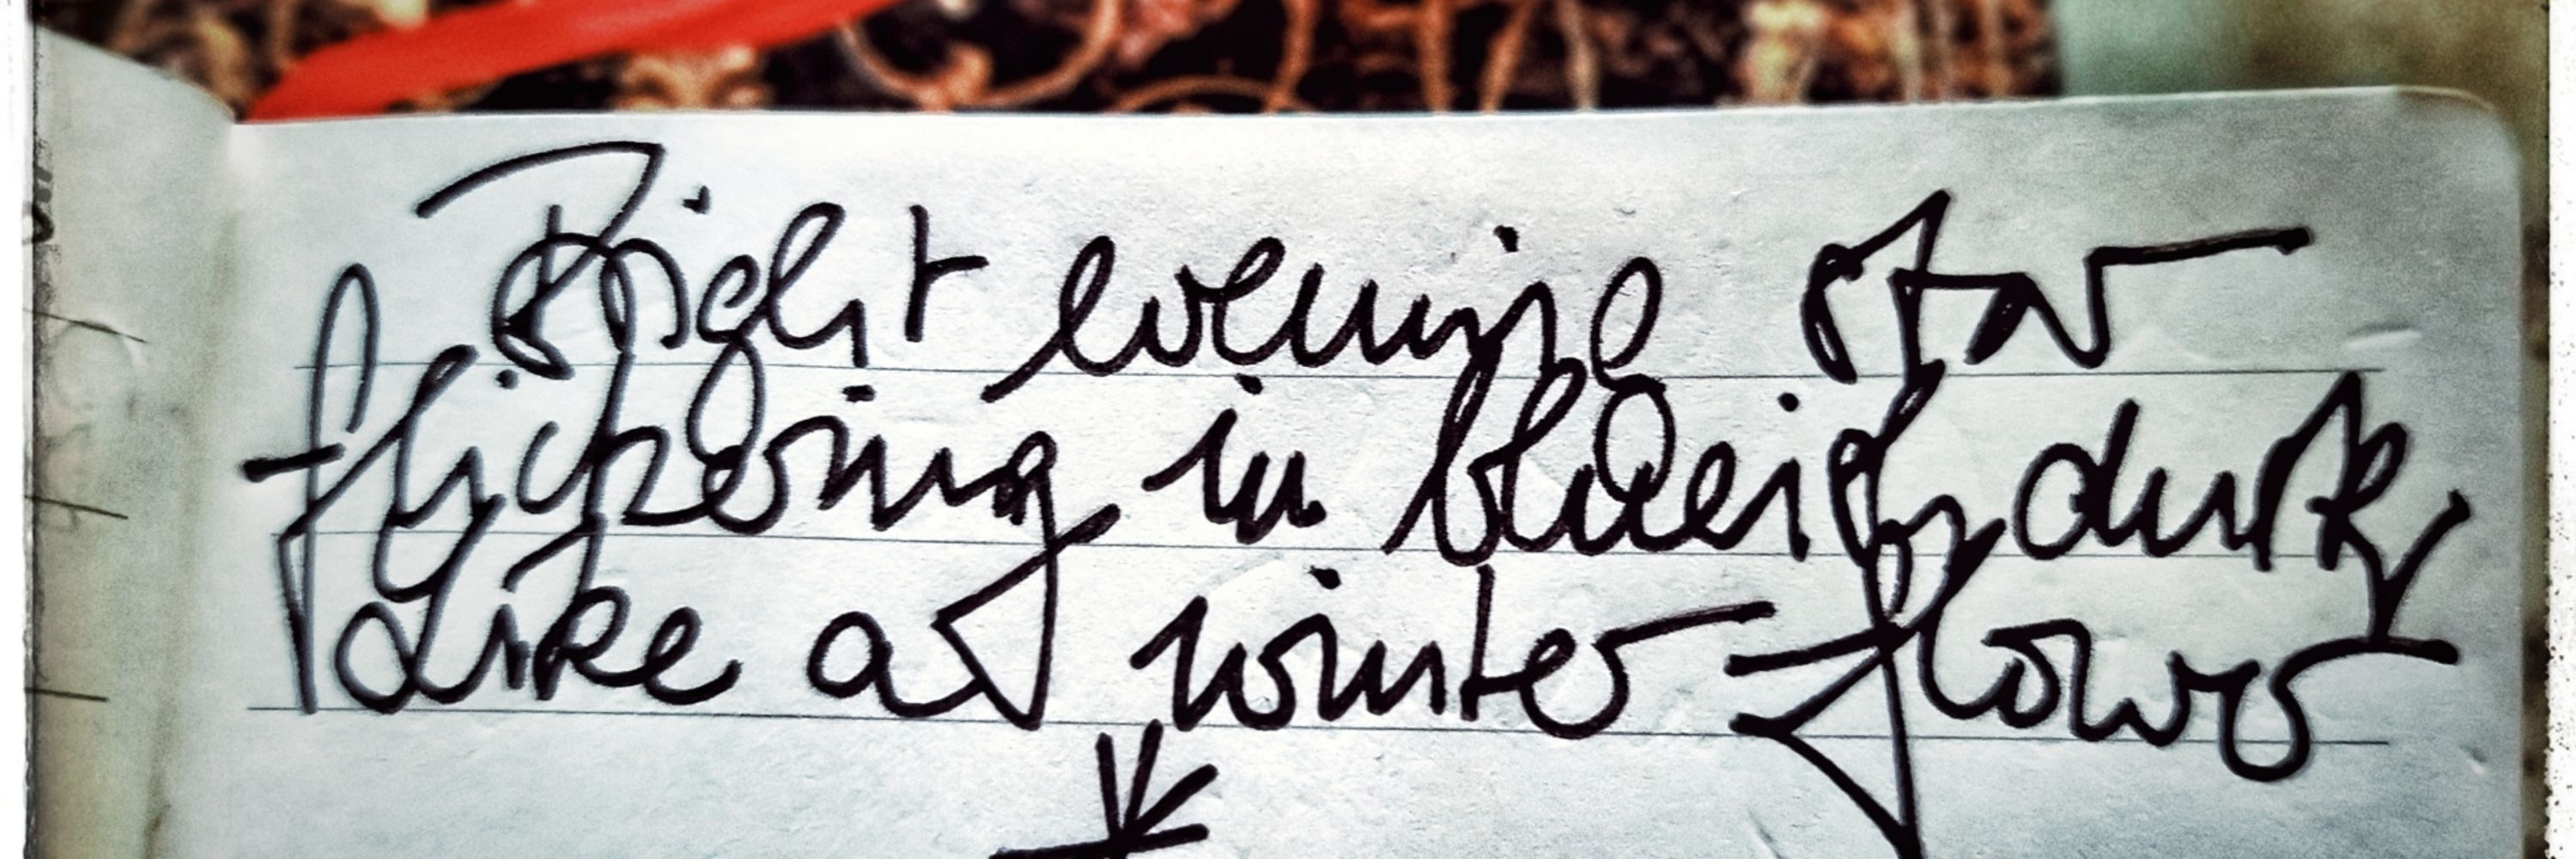 Bright evening star
flickering in blueish dusk
like a winter flower